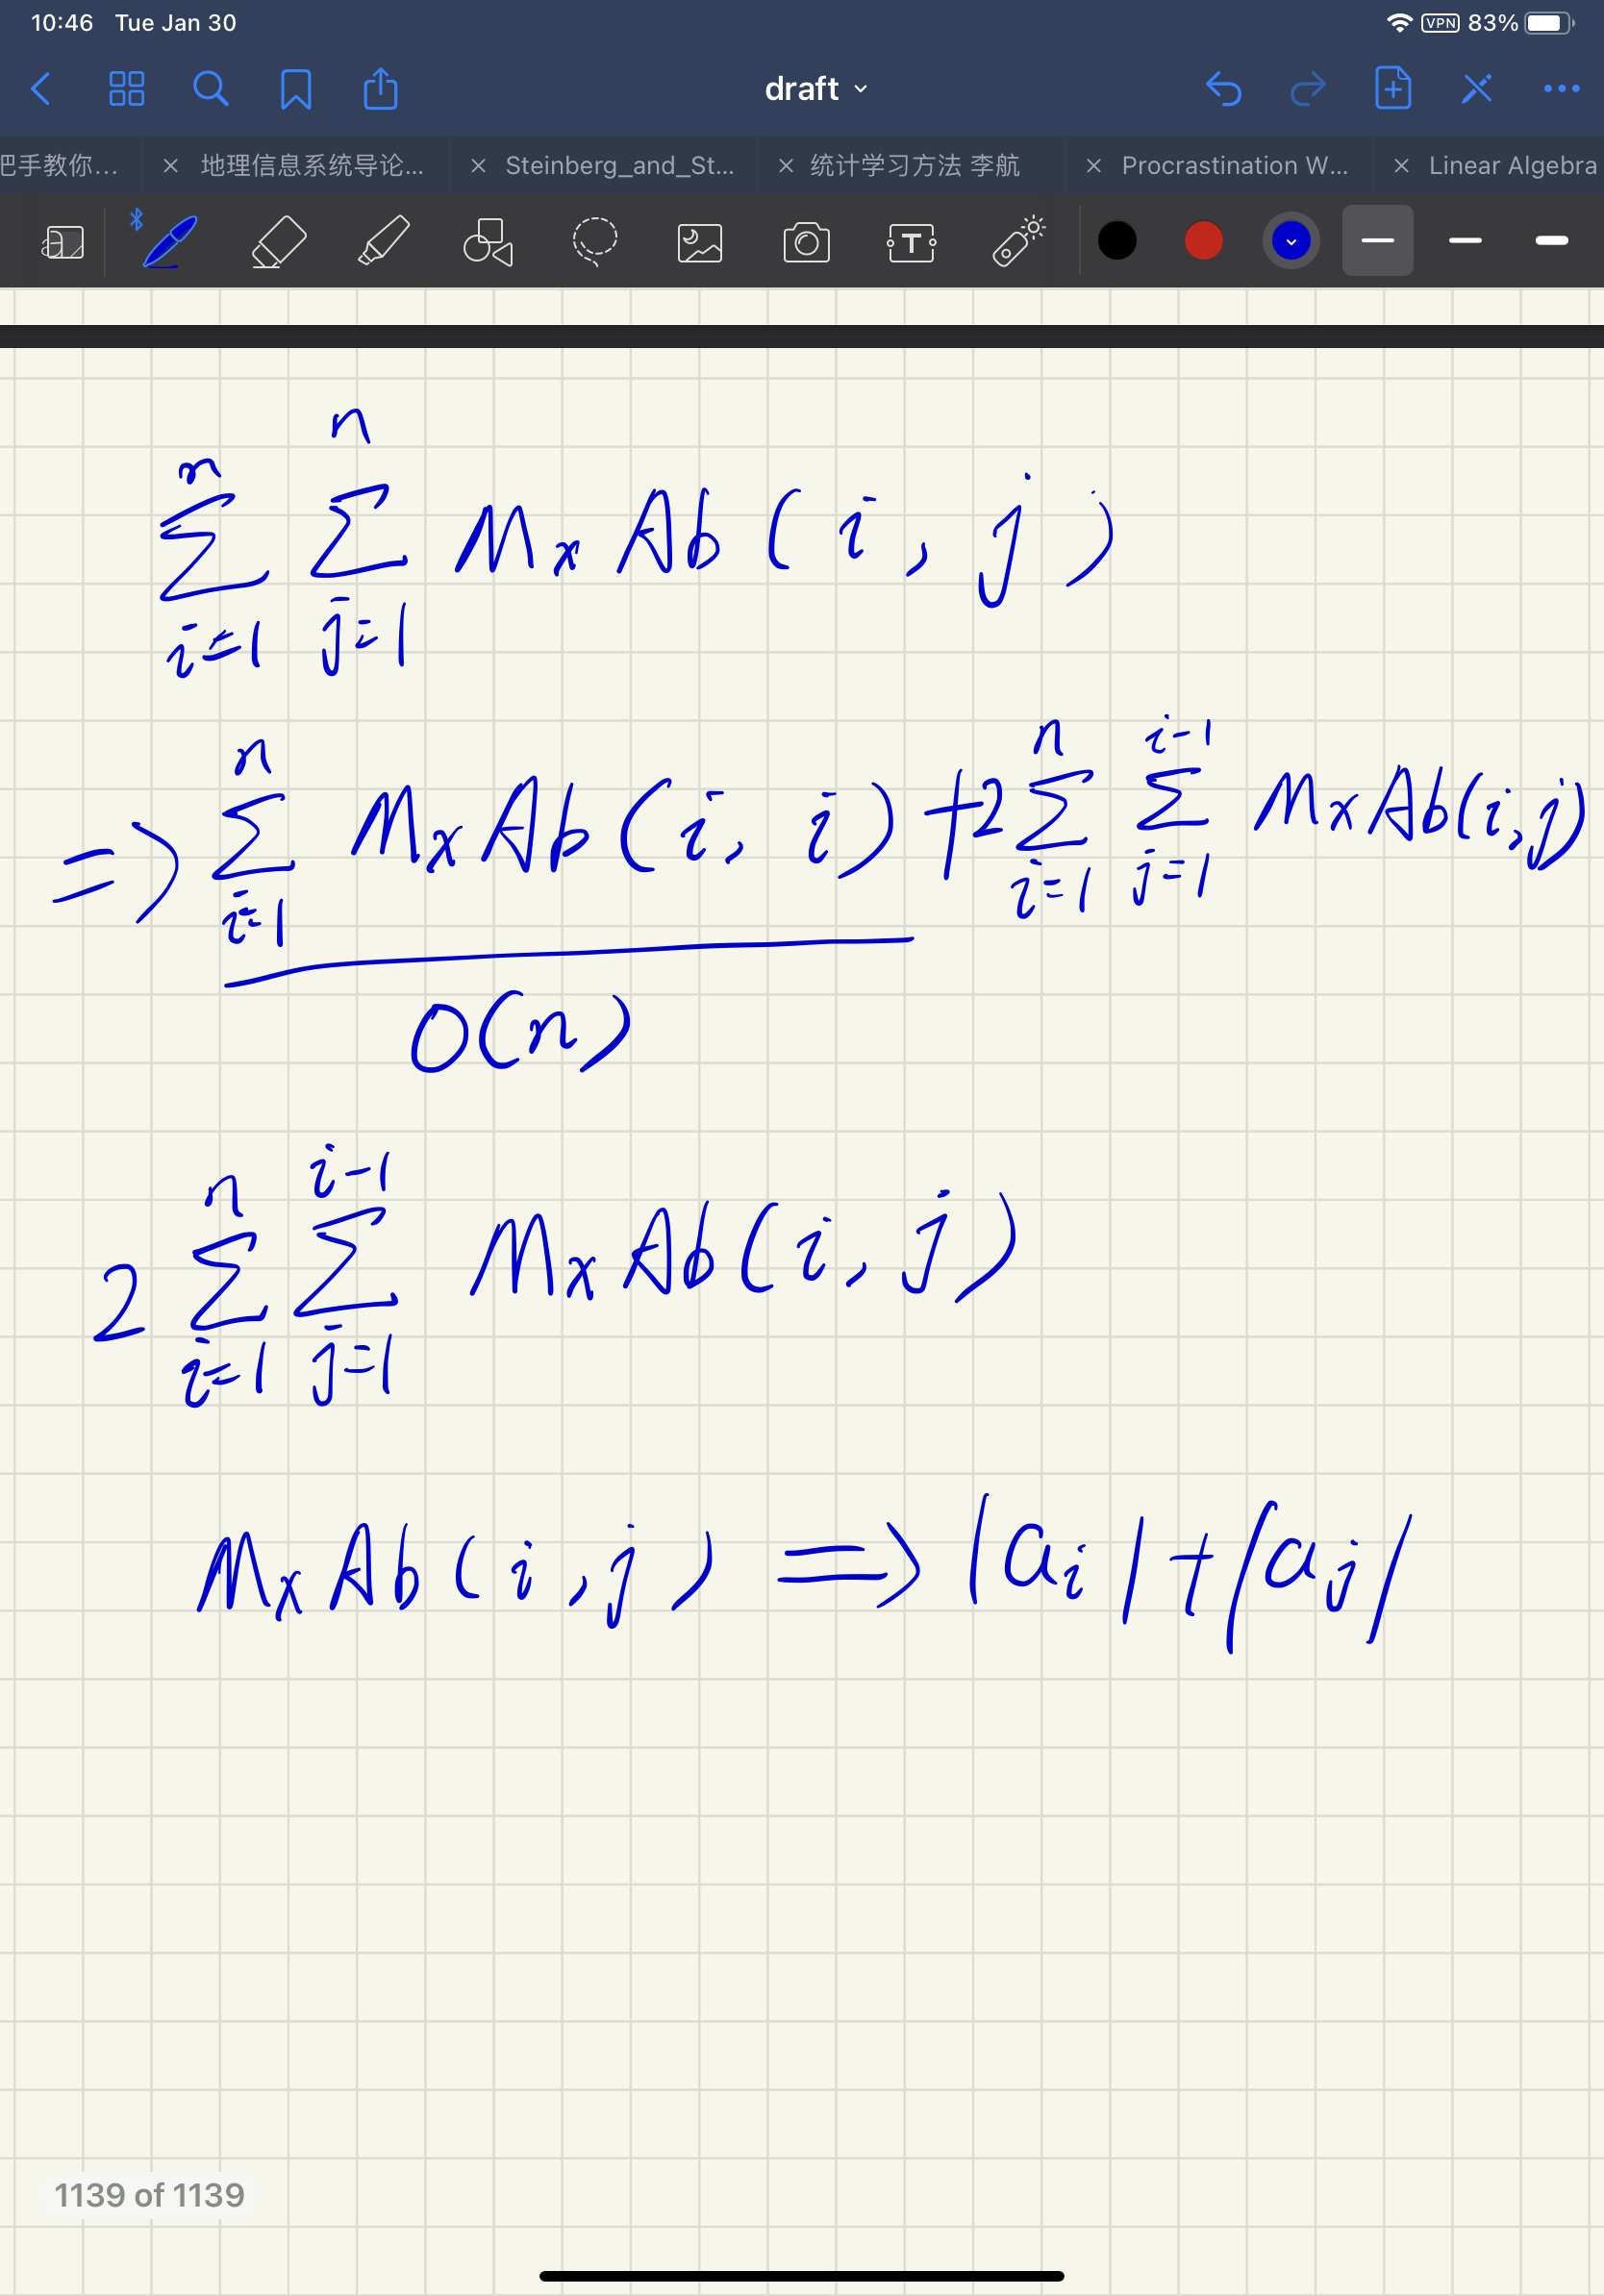 10:46 Tue Jan 30 VPN 83%
draft
把手教你... × 地理信息系统导论... × Steinberg_and_St... × 统计学习方法 李航 × Procrastination W... × Linear Algebra
T
n n
∑ ∑ MxAb(i, j)
i=1 j=1
n n i-1
=> ∑ MxAb(i, i) + 2 ∑ ∑ MxAb(i,j)
i=1 i=1 j=1
O(n)
n i-1
2 ∑ ∑ MxAb(i, j)
i=1 j=1
MxAb(i, j) => |ai| + |aj|
1139 of 1139